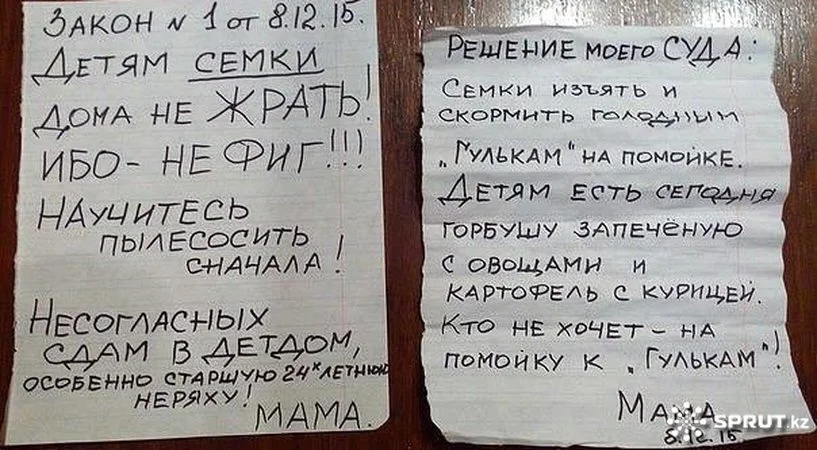 ЗАКОН N 1 от 8.12.15.
ДЕТЯМ СЕМКИ
ДОМА НЕ ЖРАТЬ!
ИБО - НЕ ФИГ!!!
НАУЧИТЕСЬ
ПЫЛЕСОСИТЬ
СНАЧАЛА!
НЕСОГЛАСНЫХ
СДАМ В ДЕТДОМ,
ОСОБЕННО СТАРШУЮ 24х ЛЕТНЮЮ
НЕРЯХУ!
МАМА.
РЕШЕНИЕ МОЕГО СУДА:
СЕМКИ ИЗЪЯТЬ И
СКОРМИТЬ ГОЛОДНЫМ
„ГУЛЬКАМ" НА ПОМОЙКЕ.
ДЕТЯМ ЕСТЬ СЕГОДНЯ
ГОРБУШУ ЗАПЕЧЁНУЮ
С ОВОЩАМИ И
КАРТОФЕЛЬ С КУРИЦЕЙ.
КТО НЕ ХОЧЕТ - НА
ПОМОЙКУ К „ГУЛЬКАМ"!
МАМА
8.12.15
SPRUT.kz